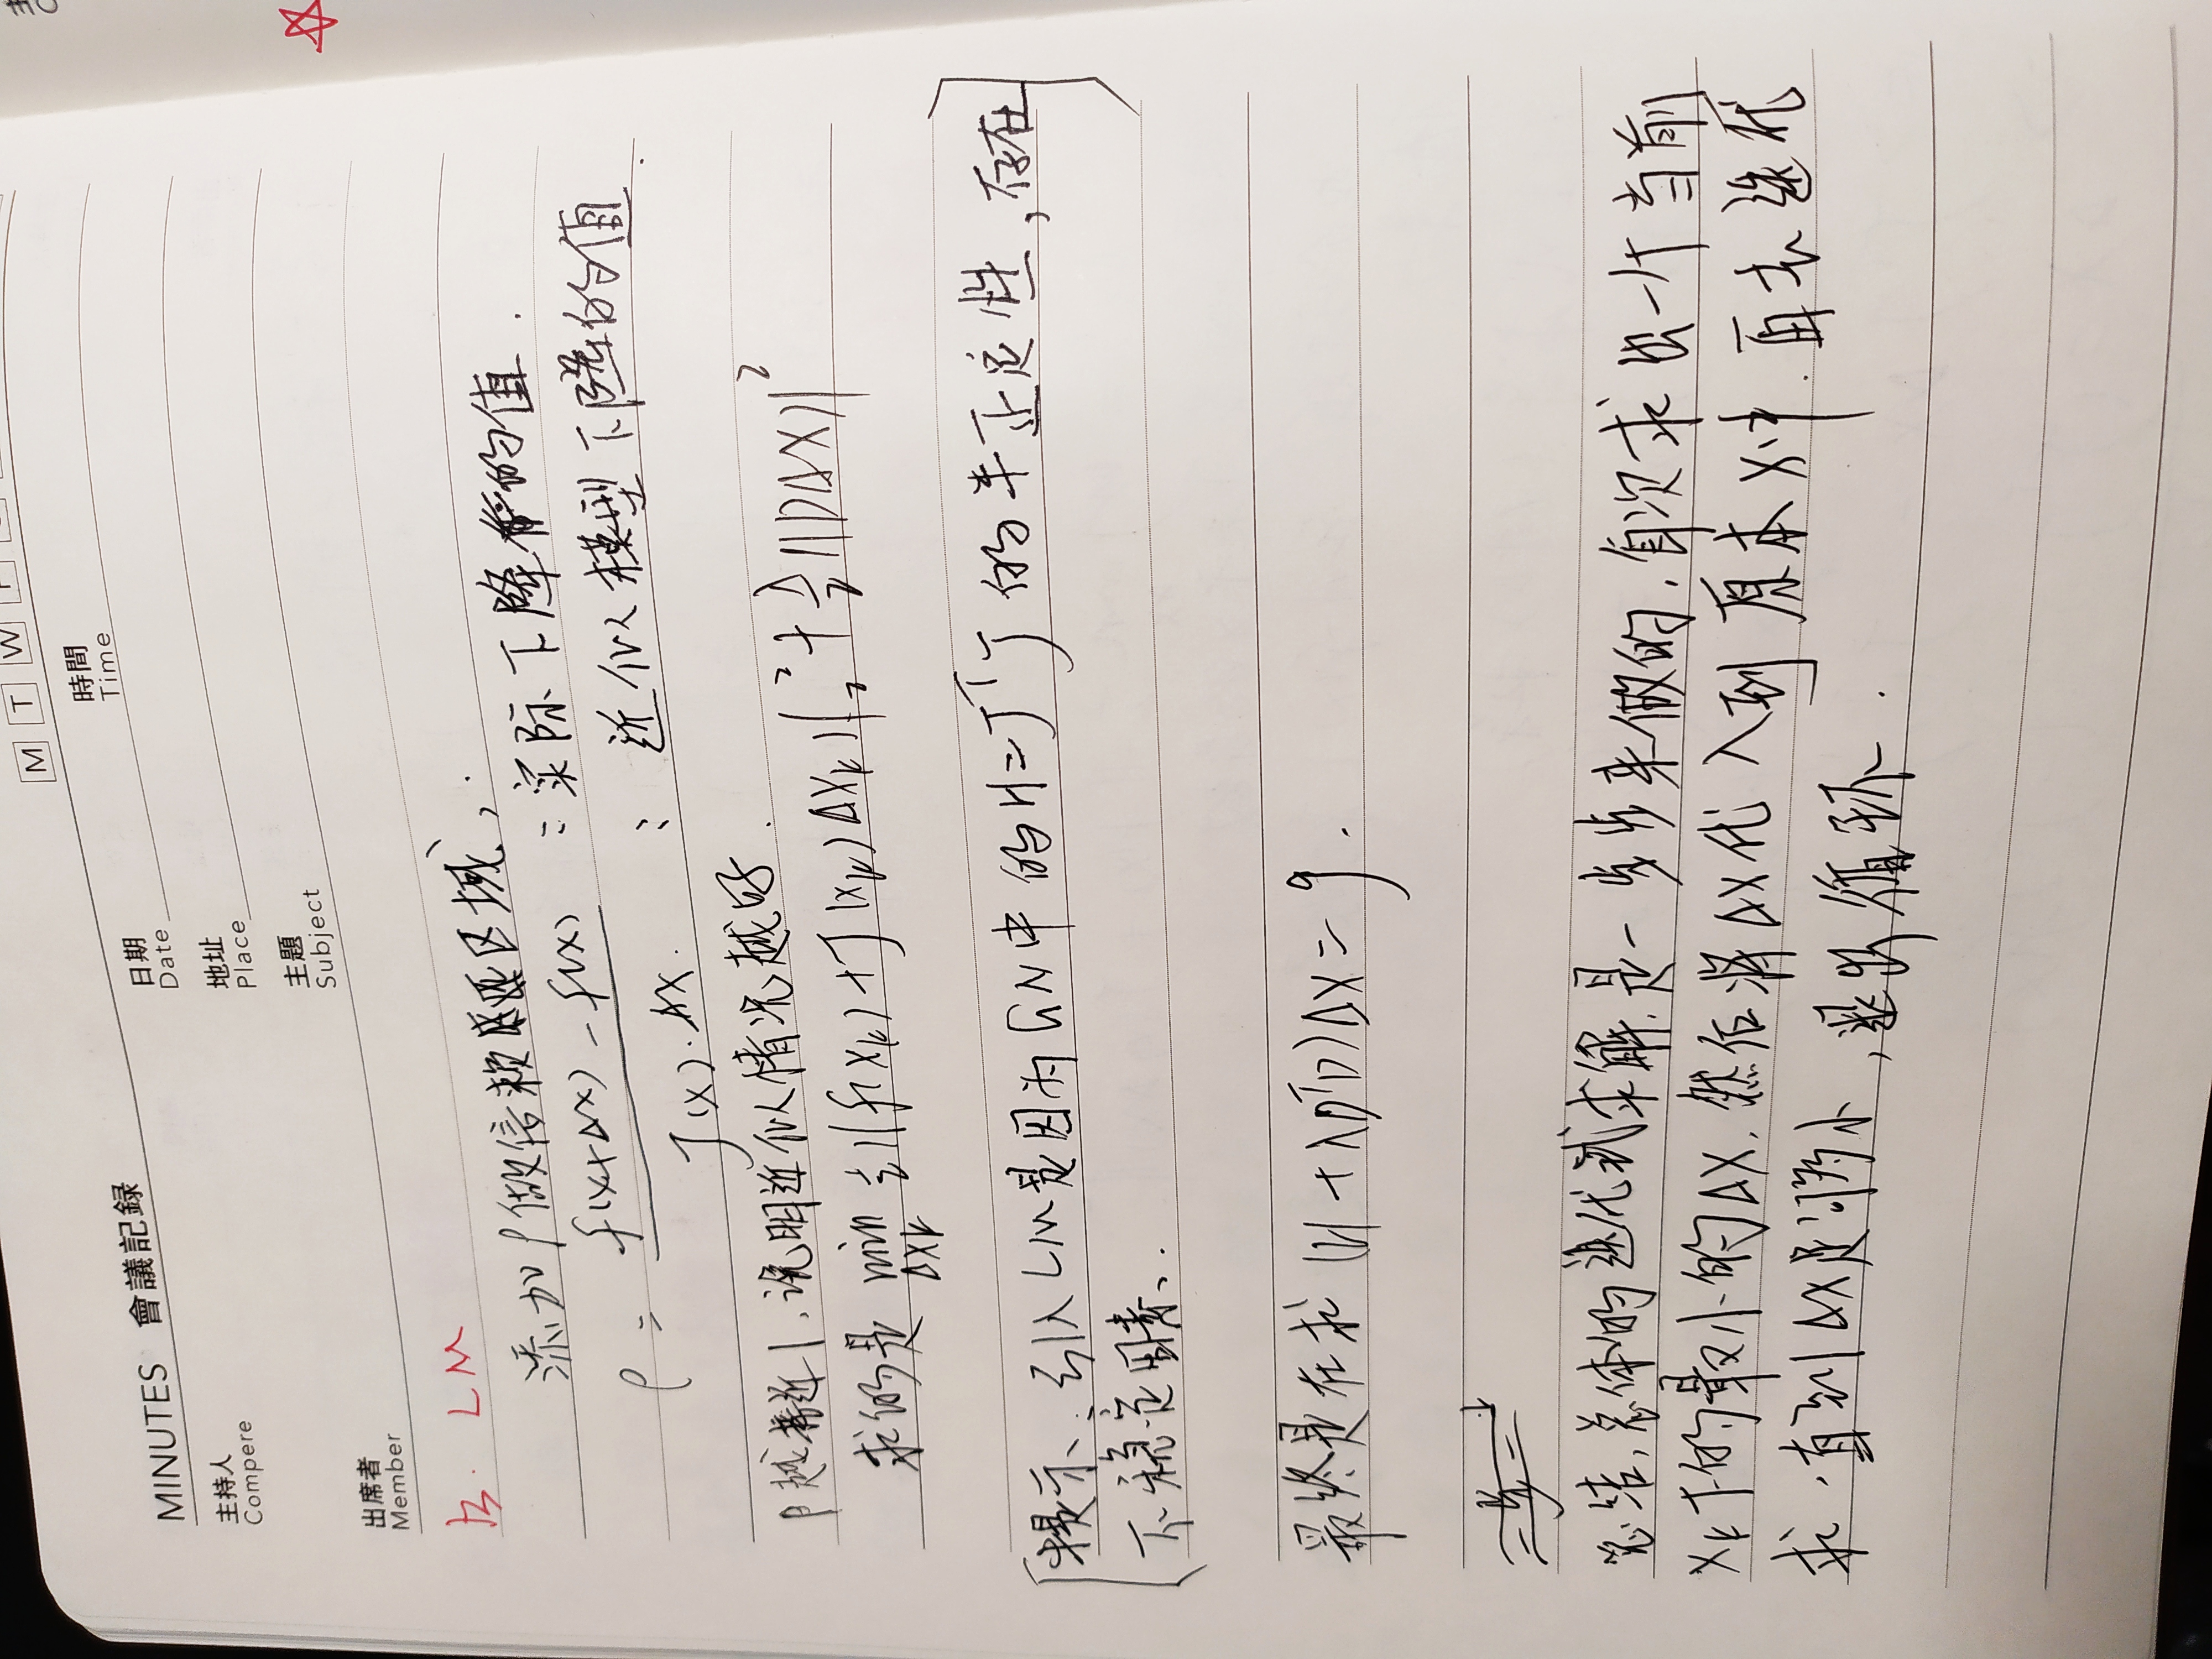 M T W
MINUTES 會議記録
日期 Date
時間 Time
主持人 Compere
地址 Place
主題 Subject
出席者 Member
LM
添加ρ做信赖区域,
ρ = f(x+Δx) - f(x) : 实际下降的值.
J(x)·Δx. : 近似模型下降的值.
ρ越接近1,说明近似情况越好.
求的是 min Δxk ½||f(xk)+J(xk)Δxk||₂² + λ/2||DΔX||²
提示:引入LM是因为GN中的H=JᵀJ的半正定性,存在
不稳定因素.
最终是在求 (H+λDᵀD)ΔX=g.
总结,总体的迭代式求解,是一步步来做的,每次求出一个当前
xk下的最小的ΔX,然后将ΔX代入到原本X中.再去迭代
求,直到ΔX足够小,退出循环.